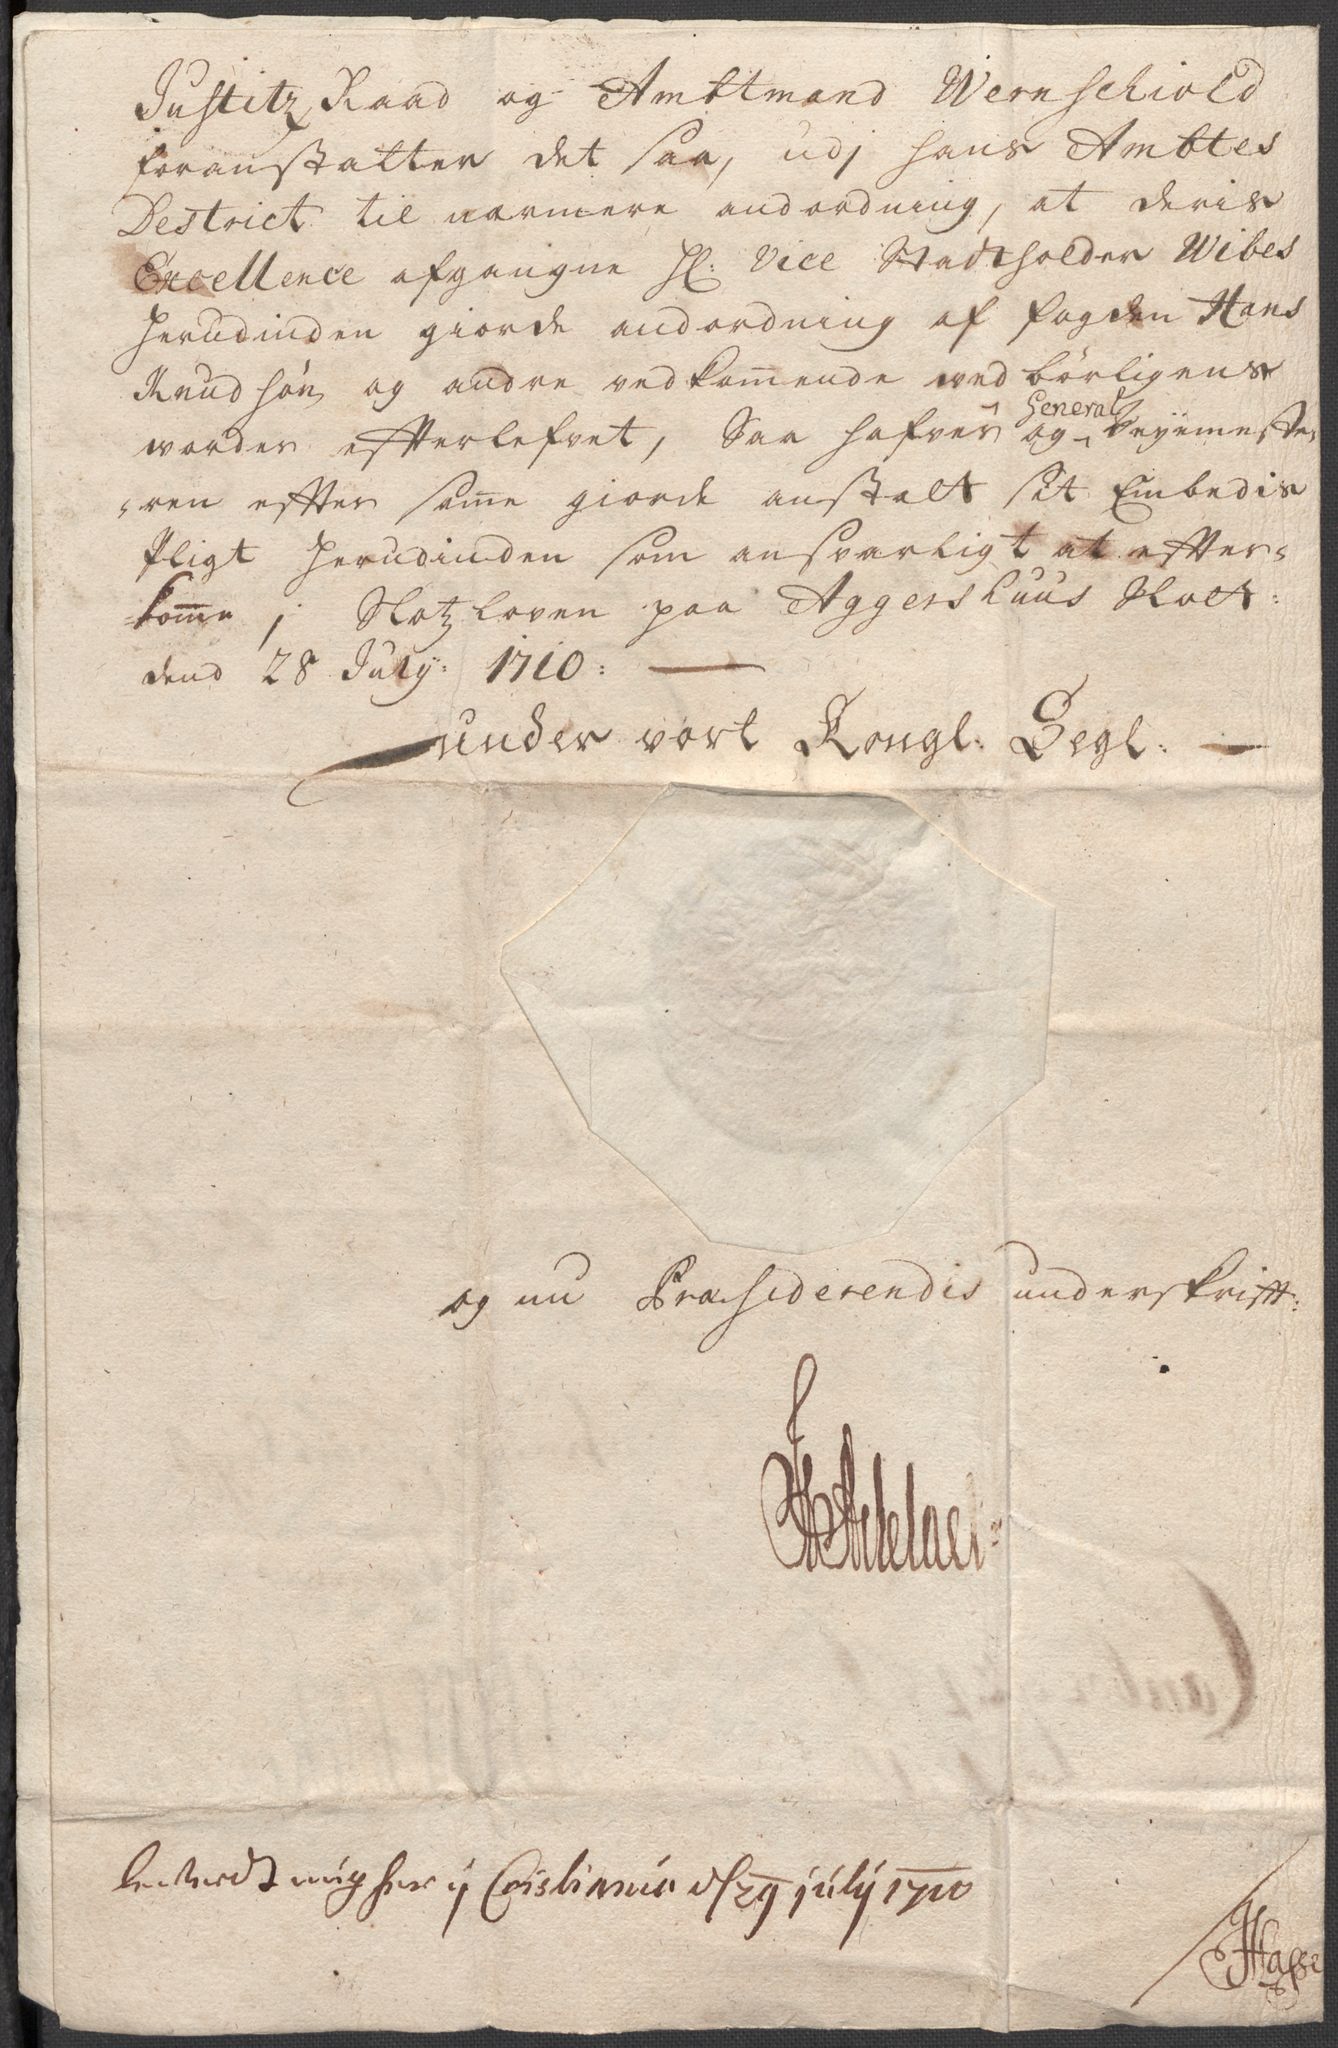 Justitz Raad og Ambtmand Wernschiold
foranstalter det saa, udj hans Ambtes
District til nærmere andordning, at deris
Excellence afgangne Hl: Vice Stadtholder Wibes
herudinden giorde andordning af fogden Hans
Knudsøn og andre vedkom̅ende ved børligens
vorder efterlefvet, Saa hafver og General Veÿemeste-
-ren effter sam̅e giorde anstalt sit Embedis
Pligt herudinden som ansvarligt at effter-
kom̅e, Slotzloven paa Aggershuus Slott:
dend 28 Julÿ: 1710:
under vort Kongl: Segl:
og nu Præsiderendis underskrifft:
leveredt mig her ÿ Cristiania d/29 júlý 1710